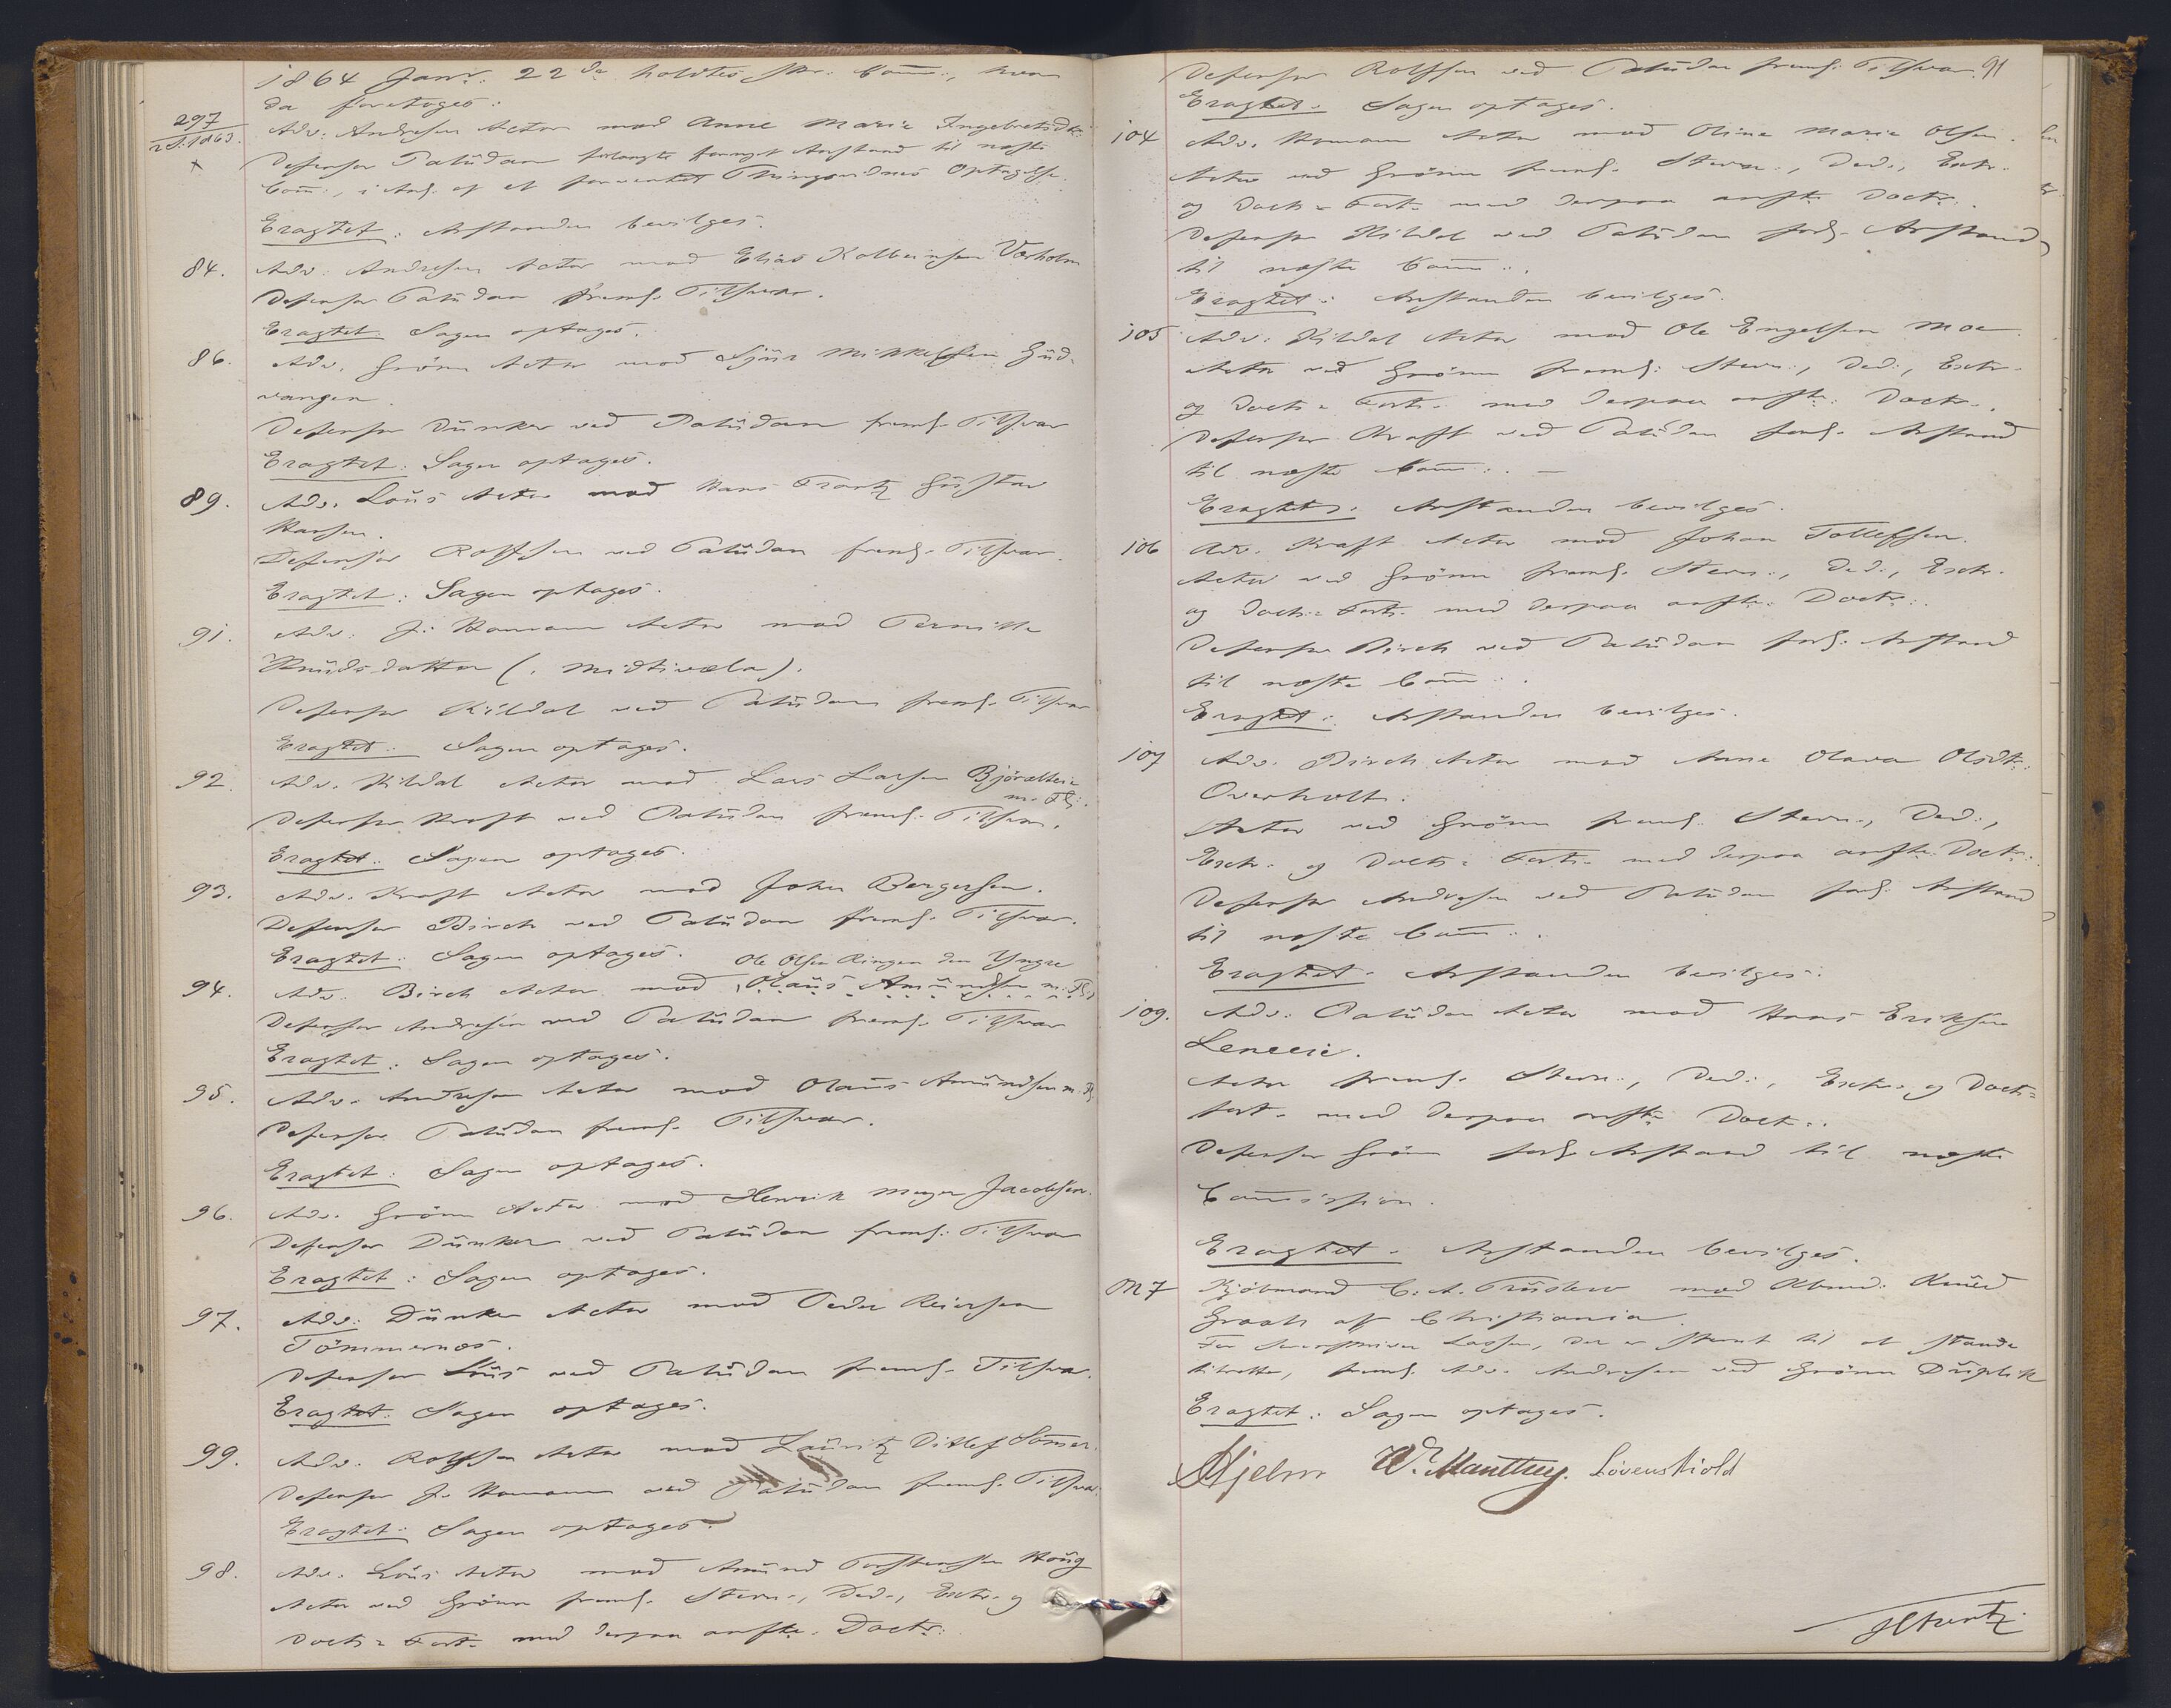 1864 Janr. 22de holdtes skr. Comm:, hvor
da foretoges:
297
2 S. 1863.
Adv: Andresen Actor mod Anne Marie Ingebretsdtr:
Defensor Paludan forlangte Anstand til næste
Com:, i Anl. af et forventet Thingsvidnes Optagelse.
Eragtet: Anstanden bevilges.
84. Adv: Andresen Actor mod Elias Kolbeinsen Varholm
Defensor Paludan freml. Tilsvar.
Eragtet: Sagen optages.
86. Adv. Grönn Actor mod Sjur Mikkelsen Gud-
vangen.
Defensor Dunker ved Paludan freml. Tilsvar
Eragtet: Sagen optages.
89. Adv. Lous Actor mod Hans Frantz Gustav
Hansen.
Defensor Rolfsen ved Paludan freml. Tilsvar.
Eragtet: Sagen optages.
91. Adv: J: Hamann Actor mod Pernille
Knudsdatter (. Midtivæla).
Defensor Kildal ved Paludan freml. Tilsvar
Eragtet: Sagen optages.
92. Adv. Kildal Actor mod Lars Larsen
m. Fl:.
Defensor Kraft ved Paludan freml. Tilsvar.
Eragtet: Sagen optages.
93. Adv. Kraft Actor mod Johan Bergersen.
Defensor Birch ved Paludan freml. Tilsvar.
Eragtet: Sagen optages.
Ole Olsen Ringen den Yngre
94. Adv. Birch Actor mod Olaus Amundsen m. Fl.
Defensor Andresen ved Paludan freml. Tilsvar
Eragtet: Sagen optages.
95. Adv. Andresen Actor mod Olaus Amundsen m. Fl.
Defensor Paludan freml. Tilsvar.
Eragtet: Sagen optages.
96. Adv. Grönn Actor mod Henrik Meyer Jacobsen.
Defensor Dunker ved Paludan freml: Tilsvar
Eragtet: Sagen optages.
97. Adv: Dunker Actor mod Peder Reiersen
Tömmernæs.
Defensor Lous ved Paludan freml. Tilsvar.
Eragtet: Sagen optages.
99. Adv. Rolfsen Actor mod Lauritz Ditlef Somer.
Defensor J. Hamann ved Paludan freml. Tilsvar.
Eragtet: Sagen optages.
98. Adv. Lous Actor mod Amund Torstensen Haug
Actor ved Grönn freml. Stevn., Ded., Extr. og
Doct: Fort. med derpaa anfte. Doctr:
91
Defensor Rolfsen ved Paludan freml. Tilsvar.
Eragtet: Sagen optages.
104 Adv. Hamann Actor mod Oline Marie Olsen.
Actor ved Grönn freml. Stevn:, Ded:, Extr.
og Doct: Fort. med derpaa anfte. Doctr:.
Defensor Kildal ved Paludan forl. Anstand
til næste Com:.
Eragtet: Anstanden bevilges.
105 Adv. Kildal Actor mod Ole Engelsen Moe
Actor ved Grönn freml: Stevn:, Ded:, Extr.
og Doct: Fort. med derpaa anfte: Doctr.
Defensor Kraft ved Paludan forl. Anstand
til næste Com:. —
Eragtet: Anstanden bevilges.
106 Adv. Kraft Actor mod Johan Tollefsen.
Actor ved Grönn freml. Stevn:, Ded:, Extr.
og Doct: Fort. med derpaa anfte: Doctr:.
Defensor Birch ved Paludan forl. Anstand
til næste Com:.
Eragtet: Anstanden bevilges.
107 Adv. Birch Actor mod Anne Olava Olsdtr:
Overholt.
Actor ved Grönn freml. Stevn:, Ded:,
Extr. og Doct: Fort. med derpaa anfte. Doctr:
Defensor Andresen ved Paludan forl: Anstand
til næste Com:.
Eragtet: Anstanden bevilges.
109. Adv: Paludan Actor mod Hans Eriksen
Leneeie.
Actor freml. Stevn:, Ded:, Extr. og Doct:
fort. med derpaa anfte Doctr:.
Defensor Grönn forl. Anstand til næste
Commission.
Eragtet: Anstanden bevilges.
M 7 Kjöbmand C. A. Truslew mod Kbmd: Knud
Graah af Christiania.
For Sorenskriver Lassen, der er stevnt til at standa
tilrette, freml. Adv. Andresen ved Grönn Duplik
Eragtet: Sagen optages.
Hjelm W. Manthey. Lövenskiold